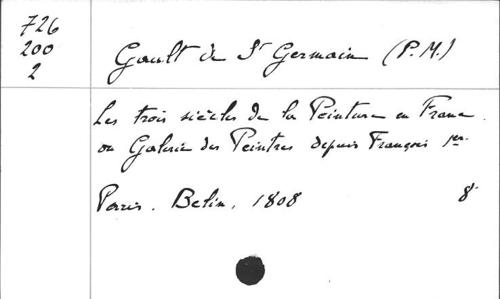 726
200
2
Gault de St Germain (P.M.)
Les trois siècles de la Peinture en France.
ou Galerie des Peintres depuis François 1er
Paris. Belin, 1808 8º